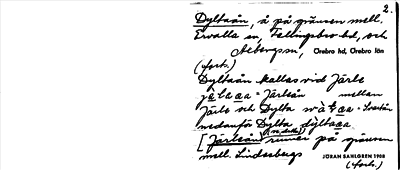 2.
Dyltaån, å på gränsen mell.
Ervalla sn, Fellingsbro hd, och
Axbergssn, Örebro hd, Örebro län
(forts.)
Dyltaån kallas vid Järle
Järleån mellan
Järle och Dylta = Svartån
nedanför Dylta dýltaɑa
[Järleån rinner på gränsen
mell. Lindesbergs JÖRAN SAHLGREN 1908
(forts.)